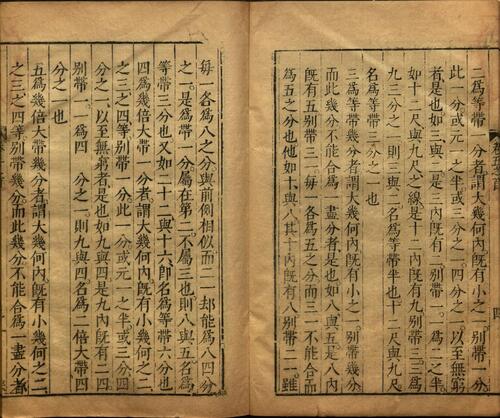 二爲等帶一分者謂大幾何內旣有小之一。別帶一分
此一分或元一之半或三分之一四分之一。以至無窮
者是也如三與二是三內旣有二別帶一。一爲二之半
如十二尺與九尺之線是十二內旣有九別帶三三爲
九三分之一。則三與二名爲等帶半也十二尺與九尺
名爲等帶三分之一也
三爲等帶幾分者謂大幾何內旣有小之一。別帶幾分
而此幾分不能合爲一盡分者是也如八與五是八內
旣有五別帶三一。每一各爲五之分而三一不能合而
爲五之分也他如十與八其十內旣有八別帶二一。雖
每一各爲八之分與前例相似而二一却能爲八四分
之一。是爲帶一分屬在第二。不屬三也則八與五名爲
等帶三分也又如二十二與十六卽名爲等帶六分也
四爲幾倍大帶一分者謂大幾何內旣有小幾何之二
之三之四等別帶一分。此一分或元一之半。或三分四
分之一。以至無窮者是也如九與四是九內旣有二四
別帶一。一爲四分之一。則九與四名爲二倍大帶四
分之一也
五爲幾倍大帶幾分者謂大幾何內旣有小幾何之二
之三之四等別帶幾分而此幾分不能合爲一盡分者